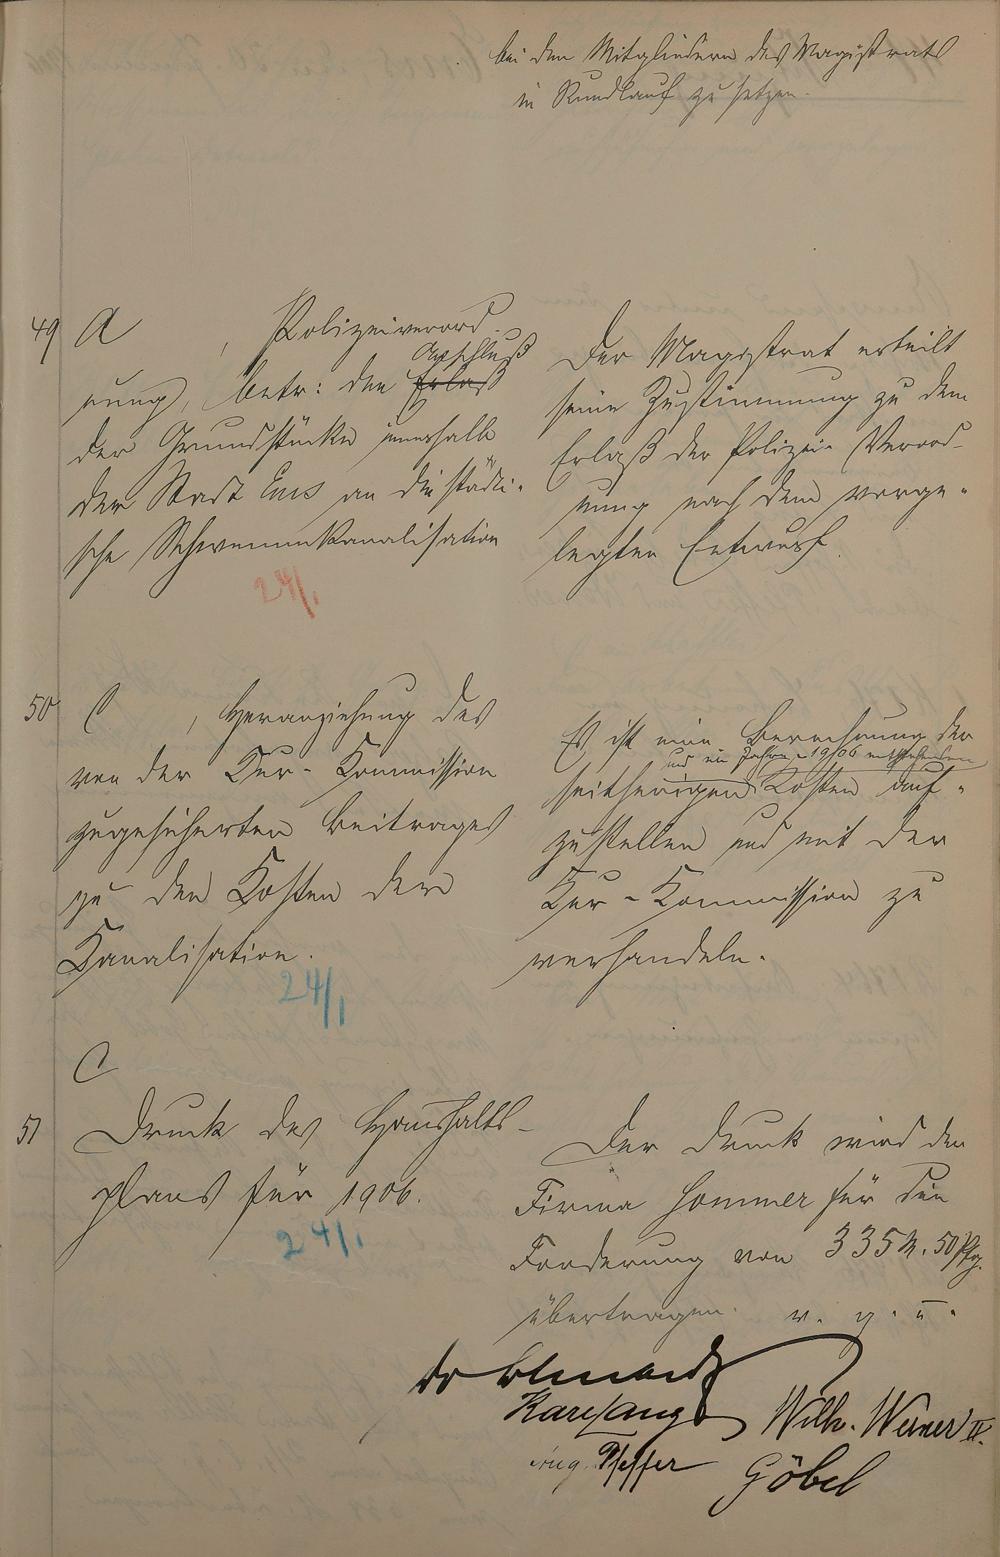 bei den Mitgliedern des Magistrats
in Rundlauf zu setzen.
49 A , Polizeiverord-
nung, betr: den Erlaß Anschluß
der Grundstücke innerhalb
der Stadt Ems an die städti-
sche Schwemmkanalisation
24/1.
Der Magistrat erteilt
seine Zustimmung zu dem
Erlaß der Polizei-Verord-
nung nach dem vorge-
legten Entwurf.
50 C , Heranziehung des
von der Kur-Kommission
zugesicherten Beitrages
zu den Kosten der
Kanalisation.
24/1
Es ist eine Berechnung der
und im Jahre 1906 entstehenden
seitherigen Kosten auf-
zustellen und mit der
Kur-Kommission zu
verhandeln.
C
51 Druck des Haushalts-
plans für 1906.
24/1.
Der Druck wird der
Firma Sommer für die
Forderung von 335 M. 50 Pfg.
übertragen. v. g. u.
Dr
Karl Lang Wilh. Werner II.
Aug. Pfeffer Göbel